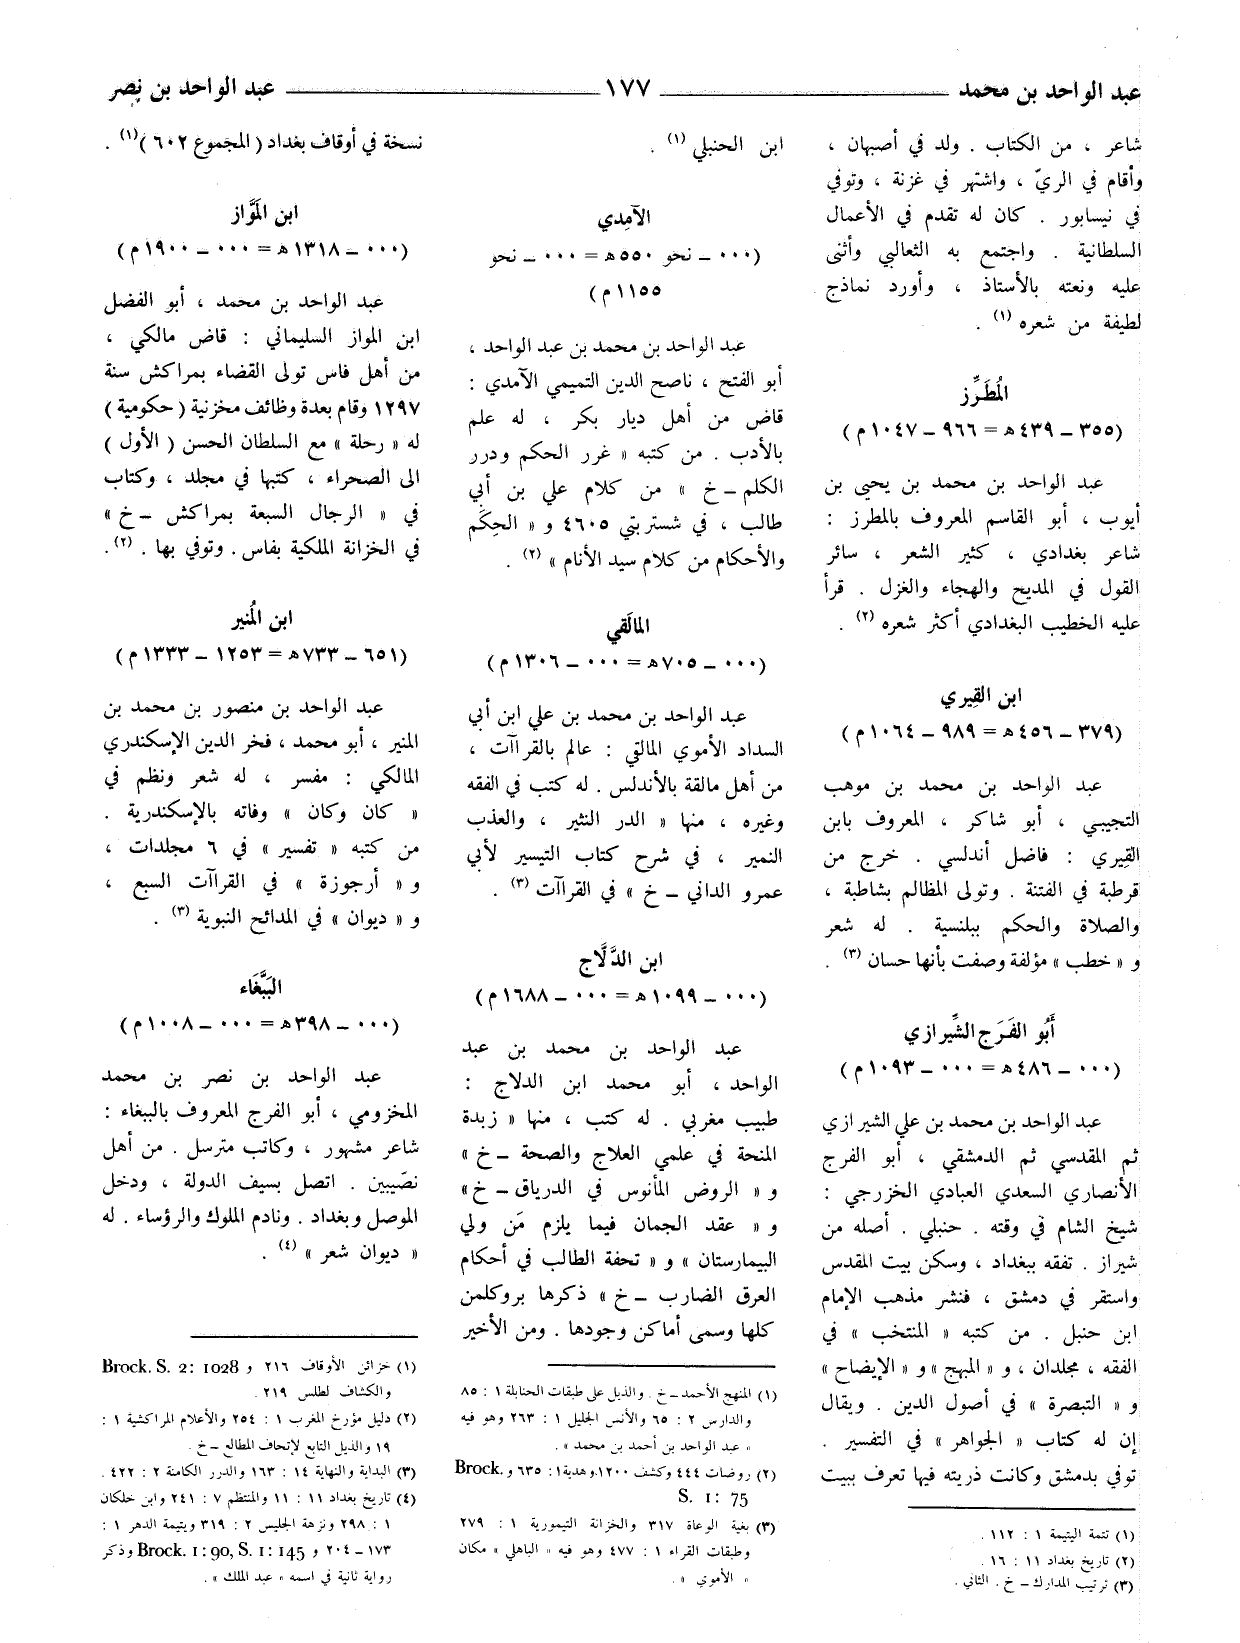 عبد الواحد بن محمد ــــــ ١٧٧ ــــــ عبد الواحد بن نصر
شاعر ، من الكتاب . ولد في أصبهان ،
وأقام في الريّ ، واشتهر في غزنة ، وتوفي
في نيسابور . كان له تقدم في الأعمال
السلطانية . واجتمع به الثعالبي وأثنى
عليه ونعته بالأستاذ ، وأورد نماذج
لطيفة من شعره (١) .
المُطَرِّز
(٣٥٥ ــ ٤٣٩ ه = ٩٦٦ ــ ١٠٤٧ م)
عبد الواحد بن محمد بن يحيى بن
أيوب ، أبو القاسم المعروف بالمطرز :
شاعر بغدادي ، كثير الشعر ، سائر
القول في المديح والهجاء والغزل . قرأ
عليه الخطيب البغدادي أكثر شعره (٢) .
ابن القِبري
(٣٧٩ ــ ٤٥٦ ه = ٩٨٩ ــ ١٠٦٤ م)
عبد الواحد بن محمد بن موهب
التجيبي ، أبو شاكر ، المعروف بابن
القِبري : فاضل أندلسي . خرج من
قرطبة في الفتنة . وتولى المظالم بشاطبة ،
والصلاة والحكم ببلنسية . له شعر
و « خطب » مؤلفة وصفت بأنها حسان (٣) .
أَبُو الفَرَج الشِّيرازي
(٠٠٠ ــ ٤٨٦ ه = ٠٠٠ ــ ١٠٩٣ م)
عبد الواحد بن محمد بن علي الشيرازي
ثم المقدسي ثم الدمشقي ، أبو الفرج
الأنصاري السعدي العبادي الخزرجي :
شيخ الشام في وقته . حنبلي . أصله من
شيراز . تفقه ببغداد ، وسكن بيت المقدس
واستقر في دمشق ، فنشر مذهب الإمام
ابن حنبل . من كتبه « المنتخب » في
الفقه ، مجلدان ، و « المبهج » و « الإيضاح »
و « التبصرة » في أصول الدين . ويقال
إن له كتاب « الجواهر » في التفسير .
توفي بدمشق وكانت ذريته فيها تعرف ببيت
(١) تتمة اليتيمة ١ : ١١٢ .
(٢) تاريخ بغداد ١١ : ١٦ .
(٣) ترتيب المدارك ــ خ . الثاني .
ابن الحنبلي (١) .
الآمِدي
(٠٠٠ ــ نحو ٥٥٠ ه = ٠٠٠ ــ نحو
١١٥٥ م)
عبد الواحد بن محمد بن عبد الواحد ،
أبو الفتح ، ناصح الدين التميمي الآمدي :
قاض من أهل ديار بكر ، له علم
بالأدب . من كتبه « غرر الحكم ودرر
الكلم ــ خ » من كلام علي بن أبي
طالب ، في شستربتي ٤٦٠٥ و « الحِكَم
والأحكام من كلام سيد الأنام » (٢) .
المالَقي
(٠٠٠ ــ ٧٠٥ ه = ٠٠٠ ــ ١٣٠٦ م)
عبد الواحد بن محمد بن علي ابن أبي
السداد الأموي المالقي : عالم بالقراآت ،
من أهل مالقة بالأندلس . له كتب في الفقه
وغيره ، منها « الدر النثير ، والعذب
النمير ، في شرح كتاب التيسير لأبي
عمرو الداني ــ خ » في القراآت (٣) .
ابن الدَّلَّاج
(٠٠٠ ــ ١٠٩٩ ه = ٠٠٠ ــ ١٦٨٨ م)
عبد الواحد بن محمد بن عبد
الواحد ، أبو محمد ابن الدلاج :
طبيب مغربي . له كتب ، منها « زبدة
المنحة في علمي العلاج والصحة ــ خ »
و « الروض المأنوس في الدرياق ــ خ »
و « عقد الجمان فيما يلزم مَن ولي
البيمارستان » و « تحفة الطالب في أحكام
العرق الضارب ــ خ » ذكرها بروكلمن
كلها وسمى أماكن وجودها . ومن الأخير
(١) المنهج الأحمد ــ خ . والذيل على طبقات الحنابلة ١ : ٨٥
والدارس ٢ : ٦٥ والأنس الجليل ١ : ٢٦٣ وهو فيه
« عبد الواحد بن أحمد بن محمد » .
(٢) روضات ٤٤٤ وكشف ١٢٠٠، وهدية ١ : ٦٣٥ و Brock.
S. 1: 75
(٣) بغية الوعاة ٣١٧ والخزانة التيمورية ١ : ٢٧٩
وطبقات القراء ١ : ٤٧٧ وهو فيه « الباهلي » مكان
« الأموي » .
نسخة في أوقاف بغداد ( المجموع ٦٠٢ )(١) .
ابن المَوَّاز
(٠٠٠ ــ ١٣١٨ ه = ٠٠٠ ــ ١٩٠٠ م)
عبد الواحد بن محمد ، أبو الفضل
ابن المواز السليماني : قاض مالكي ،
من أهل فاس تولى القضاء بمراكش سنة
١٢٩٧ وقام بعدة وظائف مخزنية ( حكومية )
له « رحلة » مع السلطان الحسن ( الأول )
الى الصحراء ، كتبها في مجلد ، وكتاب
في « الرجال السبعة بمراكش ــ خ »
في الخزانة الملكية بفاس . وتوفي بها . (٢).
ابن المُنير
(٦٥١ ــ ٧٣٣ ه = ١٢٥٣ ــ ١٣٣٣ م)
عبد الواحد بن منصور بن محمد بن
المنير ، أبو محمد ، فخر الدين الإسكندري
المالكي : مفسر ، له شعر ونظم في
« كان وكان » وفاته بالإسكندرية .
من كتبه « تفسير » في ٦ مجلدات ،
و « أرجوزة » في القراآت السبع ،
و « ديوان » في المدائح النبوية (٣) .
البَبَّغَاء
(٠٠٠ ــ ٣٩٨ ه = ٠٠٠ ــ ١٠٠٨ م)
عبد الواحد بن نصر بن محمد
المخزومي ، أبو الفرج المعروف بالببغاء :
شاعر مشهور ، وكاتب مترسل . من أهل
نصَيبين . اتصل بسيف الدولة ، ودخل
الموصل وبغداد . ونادم الملوك والرؤساء . له
« ديوان شعر » (٤) .
(١) خزائن الأوقاف ٢١٦ و Brock. S. 2: 1028
والكشاف لطلس ٢١٩ .
(٢) دليل مؤرخ المغرب ١ : ٢٥٤ والأعلام المراكشية ١ :
١٩ والذيل التابع لإتحاف المطالع ــ خ .
(٣) البداية والنهاية ١٤ : ١٦٣ والدرر الكامنة ٢ : ٤٢٢ .
(٤) تاريخ بغداد ١١ : ١١ والمنتظم ٧ : ٢٤١ وابن خلكان
١ : ٢٩٨ ونزهة الجليس ٢ : ٣١٩ ويتيمة الدهر ١ :
١٧٣ ــ ٢٠٤ و Brock. 1: 90, S. 1: 145 وذكر
رواية ثانية في اسمه « عبد الملك » .